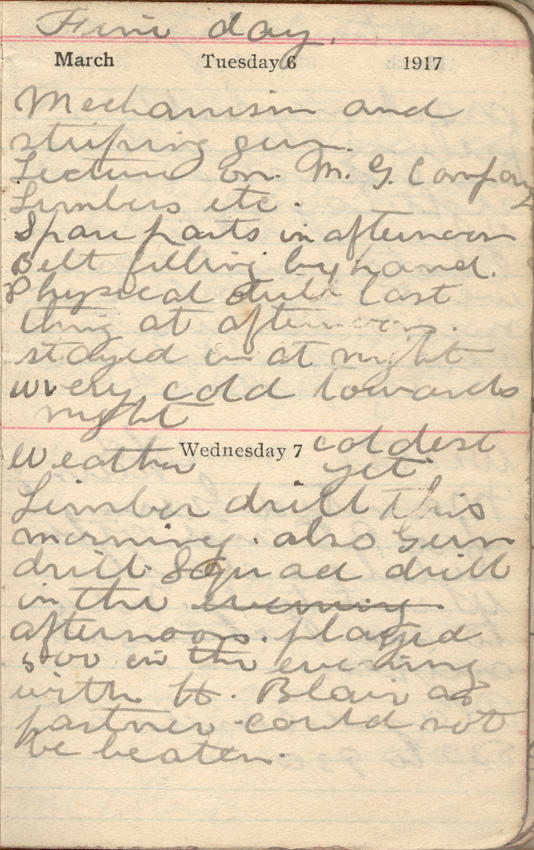 Fine day.
March Tuesday 6 1917
Mechanism and
striping gun.
Lecture on. M. G. Company
Limbers etc.
Spare parts in afternoon
Belt filling by hand.
Physical drill last
thing at afternoon.
stayed in at night
very cold towards
night
Wednesday 7
Weather coldest
yet.
Limber drill this
morning. also Gun
drill. Squad drill
in the evening
afternoon. played
500 in the evening
with H. Blair as
partner. could not
be beaten.